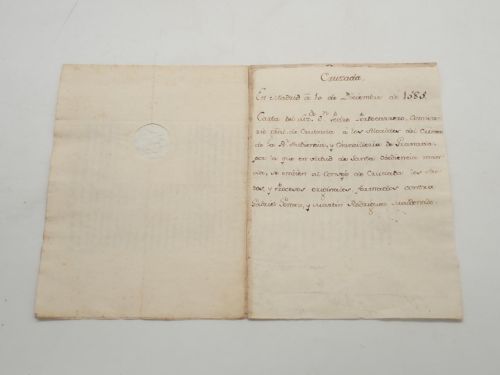 Cruzada.
En Madrid à 10 de Diciembre de 1685.
Carta del Portocarrero, Comisa-
rio gral. de Cruzada à los Alcaldes del Crimen
de la Rl. Audiencia, y Chancilleria de Granada,
por la que en virtud de Santa Obediencia man-
da, se embien al Consejo de Cruzada los Au-
tos, y Procesos originales, formados contra
Gabriel Gomez, y Martin Rodriguez Maldonado.